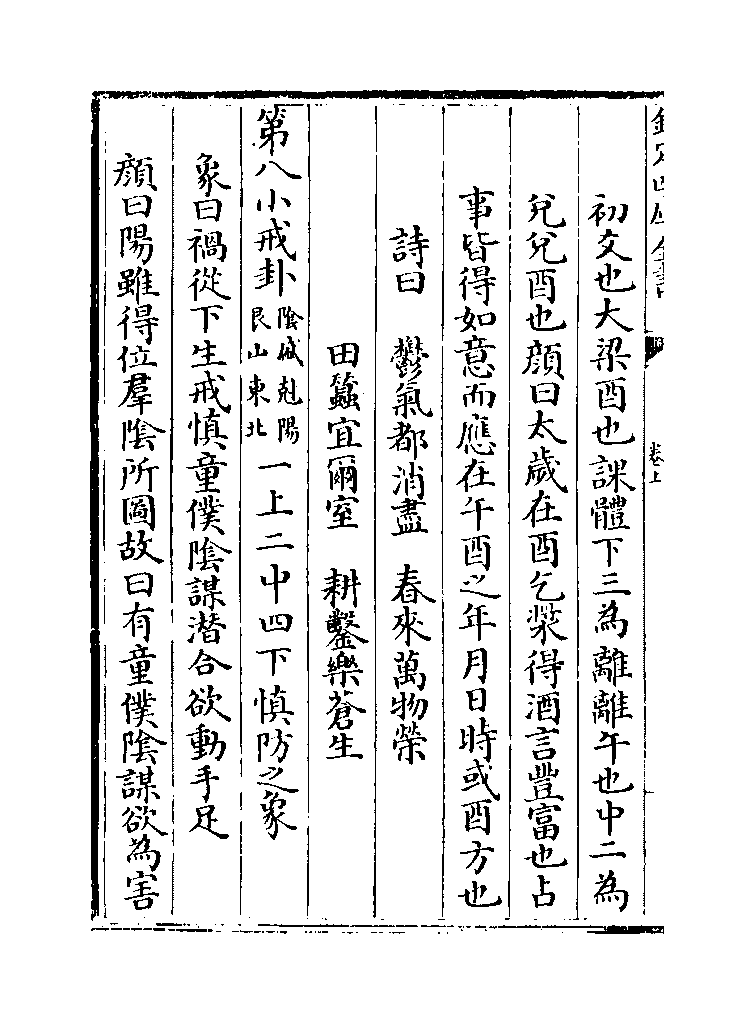 欽定四庫全書
卷上
初爻也大梁酉也課體下三為離離午也中二為
兌兌酉也顔曰太歲在酉乞漿得酒言豐富也占
事皆得如意而應在午酉之年月日時或酉方也
詩曰　鬱氣都消盡　春來萬物榮
田蠶宜爾室　耕鑿樂蒼生
第八小戒卦陰城剋陽艮山東北一上二中四下慎防之象
象曰禍從下生戒慎童僕陰謀潛合欲動手足
顔曰陽雖得位羣陰所圖故曰有童僕陰謀欲為害